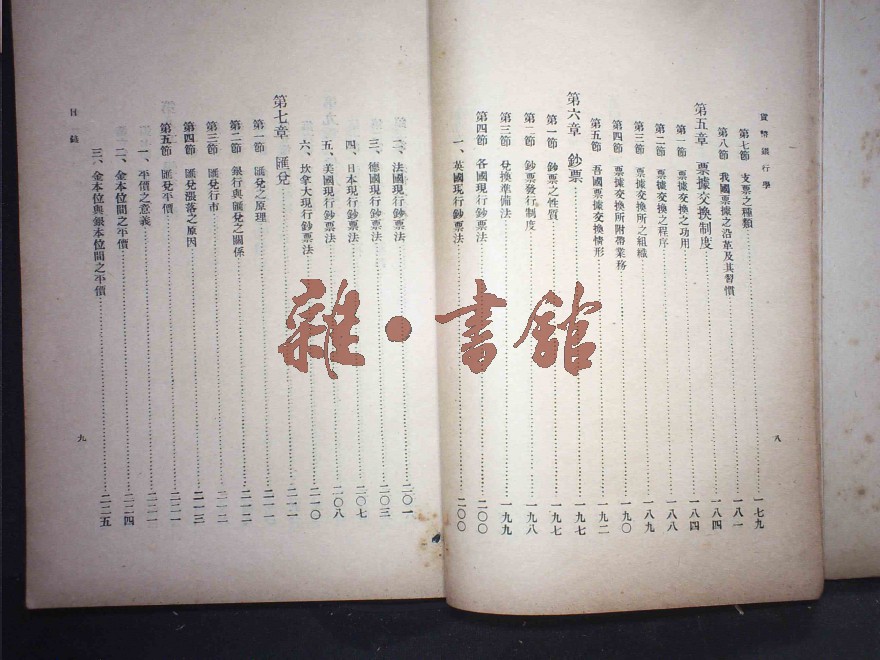 貨幣銀行學
八
第七節 支票之種類 一七九
第八節 我國票據之沿革及其習慣 一八一
第五章 票據交換制度 一八四
第一節 票據交換之功用 一八四
第二節 票據交換之程序 一八八
第三節 票據交換所之組織 一八九
第四節 票據交換所附帶業務 一九〇
第五節 吾國票據交換情形 一九二
第六章 鈔票 一九七
第一節 鈔票之性質 一九七
第二節 鈔票發行制度 一九八
第三節 兌換準備法 一九九
第四節 各國現行鈔票法 二〇〇
一、英國現行鈔票法 二〇〇
二、法國現行鈔票法 二〇一
三、德國現行鈔票法 二〇三
四、日本現行鈔票法 二〇七
五、美國現行鈔票法 二〇八
六、坎拿大現行鈔票法 二一〇
第七章 匯兌 二一一
第一節 匯兌之原理 二一一
第二節 銀行與匯兌之關係 二一二
第三節 匯兌行市 二一二
第四節 匯兌漲落之原因 二一三
第五節 匯兌平價 二二一
一、平價之意義 二二一
二、金本位間之平價 二二四
三、金本位與銀本位間之平價 二二五
目錄
九
雜·書館